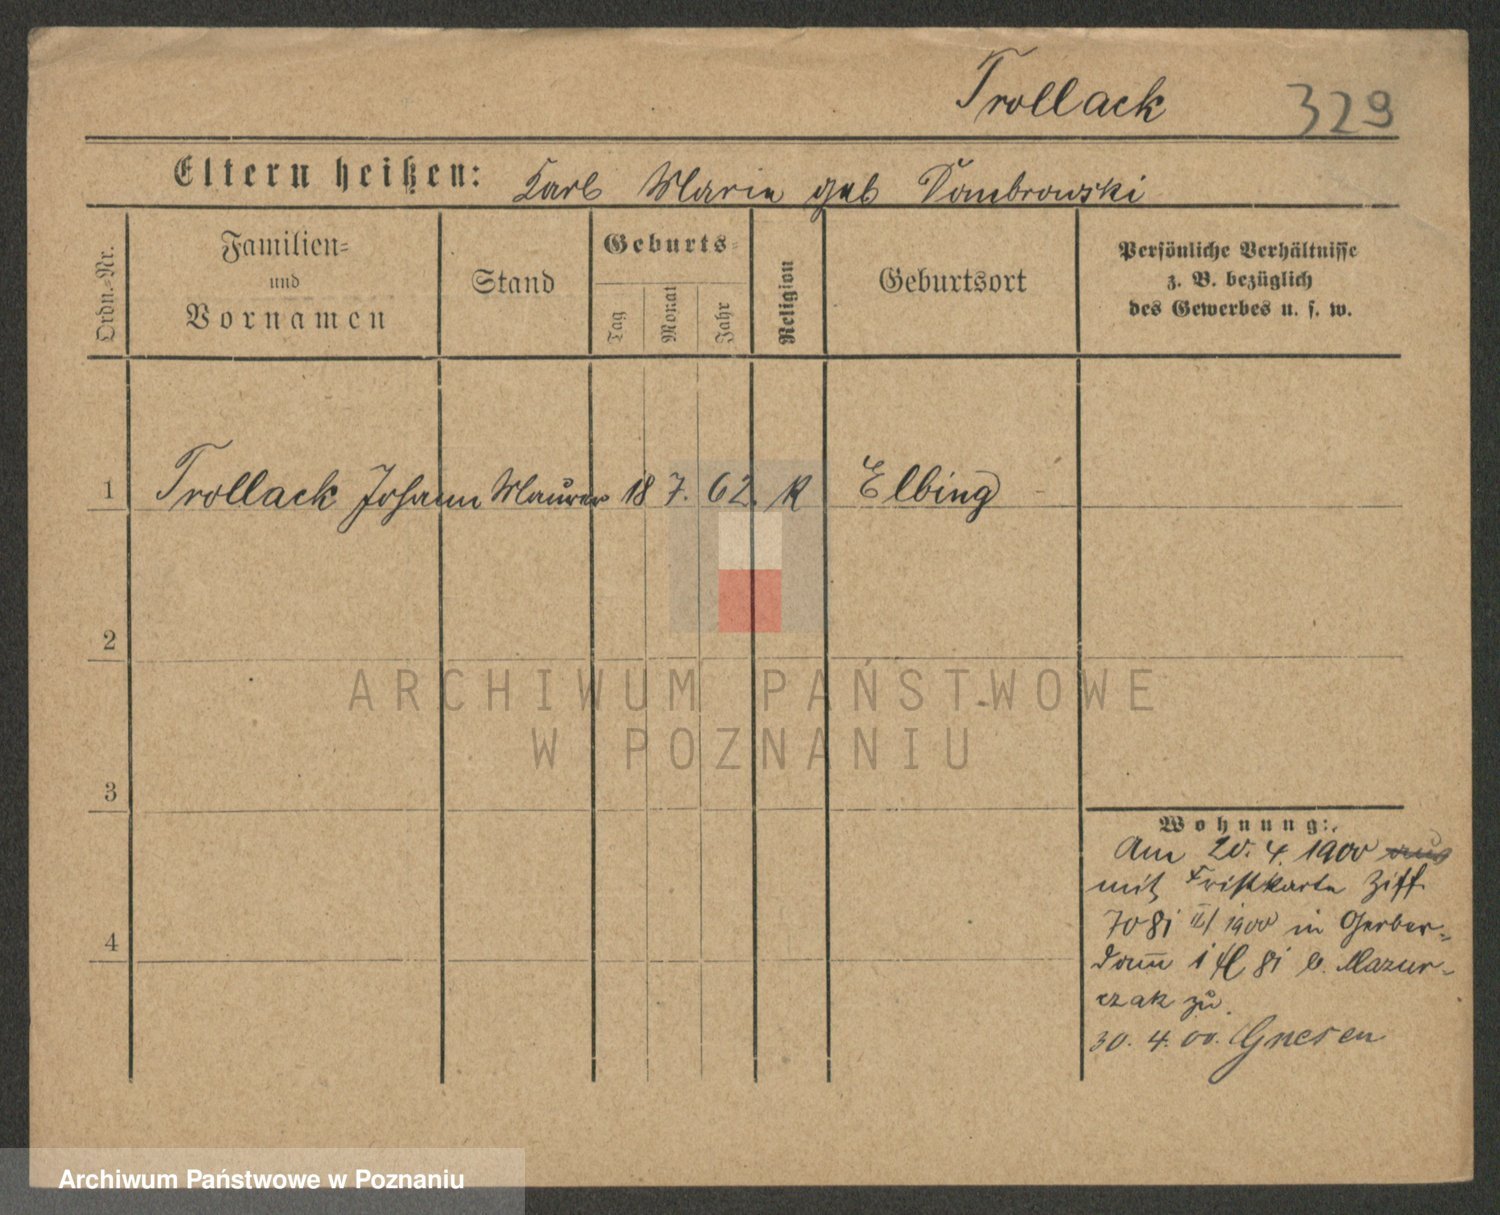 Trollack 329
Eltern heißen: Karl Maria geb Dombrowski
Ordn.-Nr.
Familien-
und
Vornamen
Stand
Geburts-
Tag
Monat
Jahr
Religion
Geburtsort
Persönliche Verhältnisse
z. B. bezüglich
des Gewerbes u. s. w.
1 Trollack Johann Maurer 18 7. 62. K Elbing
2
3
4
Wohnung:
Am 20. 4. 1900 aus
mit Fristkarte Ziff
7081 II/1900 in Gerber-
damm 1 b. Mazur-
czak zu.
30. 4. 00. Gnesen
ARCHIWUM PAŃSTWOWE
W POZNANIU
Archiwum Państwowe w Poznaniu